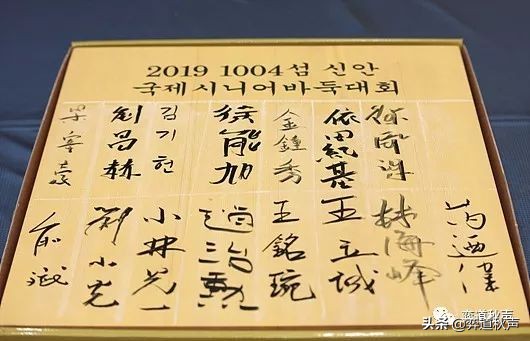 2019 1004섬 신안
국제시니어바둑대회
梁宰豪
劉昌赫
김기헌
徐能旭
金鍾秀
依田紀基
徐奉洙
俞斌
劉小光
小林光一
趙治勳
王銘琬
王立诚
林海峰
芮迺偉
弈道秋声
头条@弈道秋声